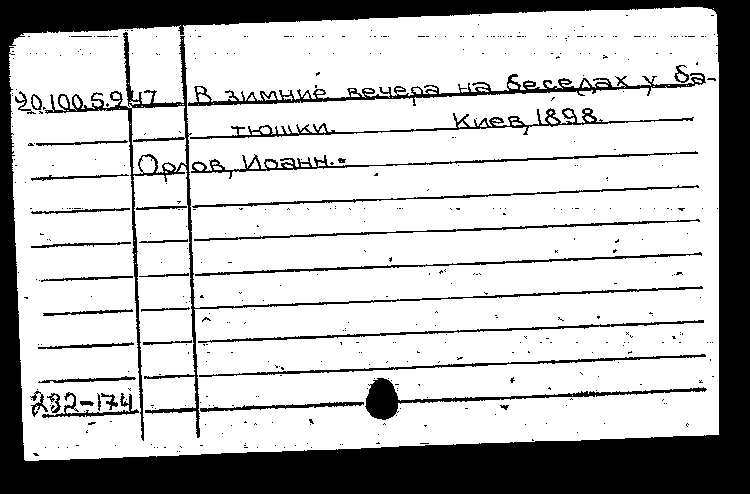 20.100.5.947 В зимние вечера на беседах у ба-
тюшки. Киев, 1898.
Орлов, Иоанн.
232-174